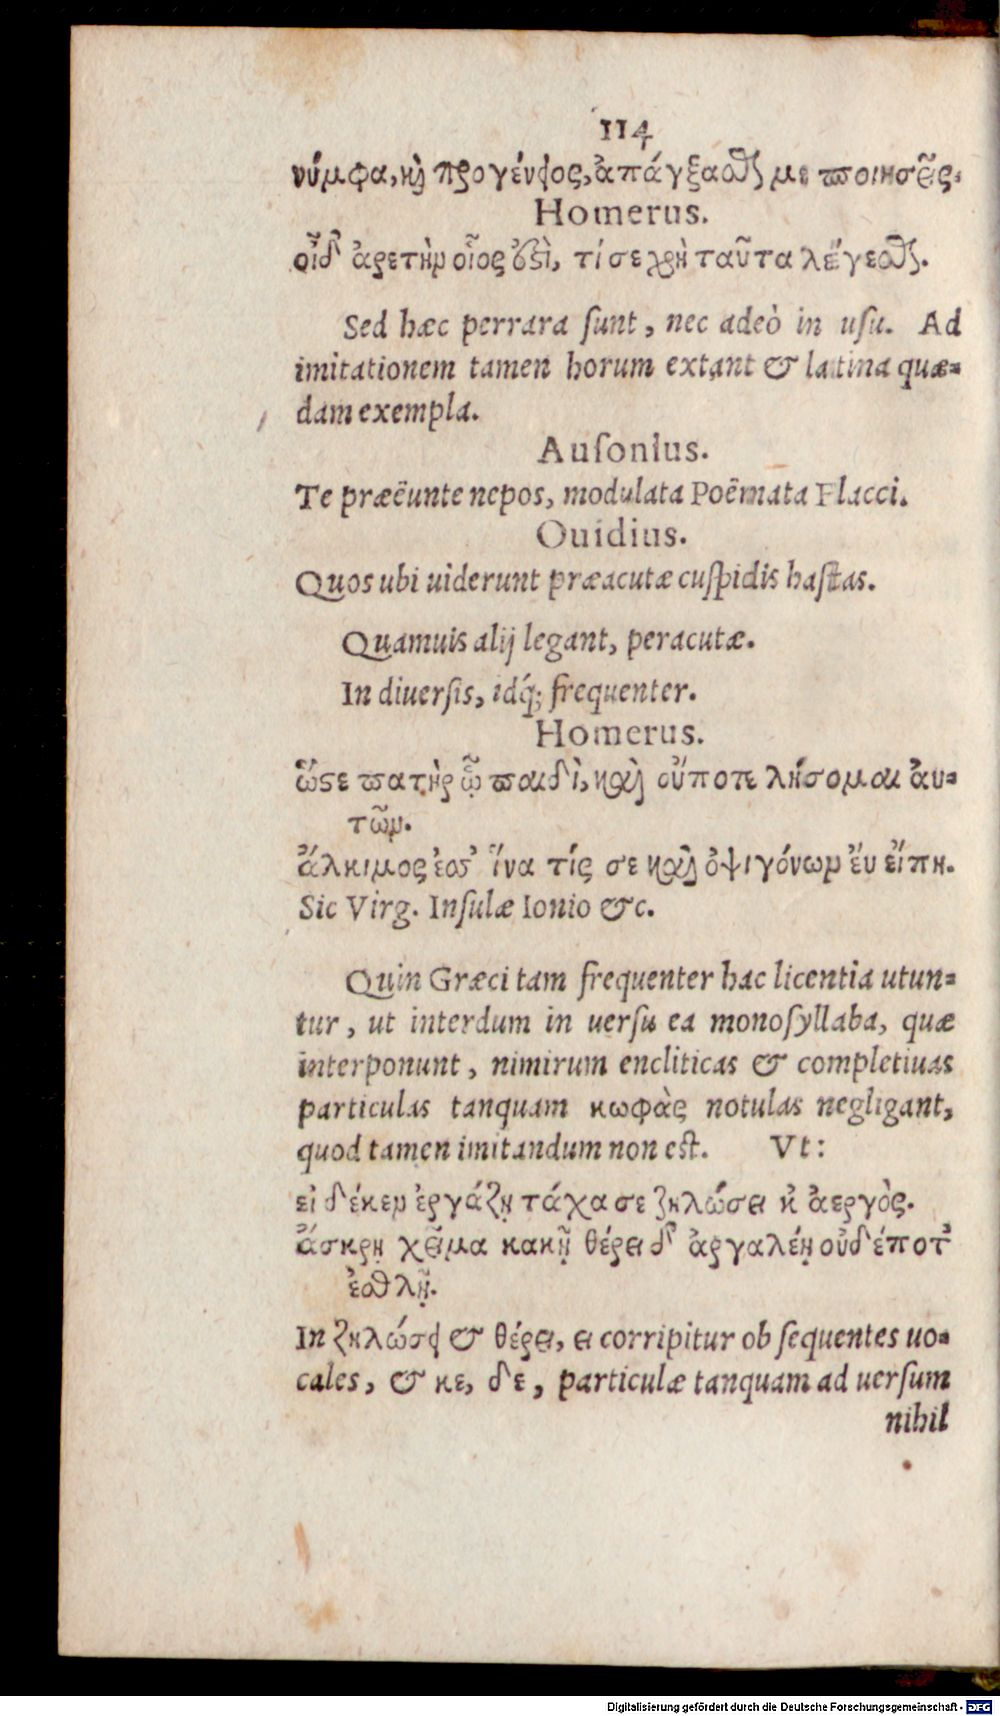 114
νύμφα, καὶ προγένειος, ἀπάγξασθαί με ποιησεῖς.
Homerus.
οἶδ᾽ ἀρετὴν οἷος ἐσσὶ, τί σε χρὴ ταῦτα λέγεσθαι.
Sed hæc perrara ſunt, nec adeò in uſu. Ad
imitationem tamen horum extant & latina quæ=
dam exempla.
Auſonius.
Te præëunte nepos, modulata Poëmata Flacci.
Ouidius.
Quos ubi uiderunt præacutæ cuſpidis haſtas.
Quamuis alij legant, peracutæ.
In diuerſis, idq́; frequenter.
Homerus.
ὥστε πατὴρ ᾧ παιδὶ, καὶ οὔποτε λήσομαι ἀυ=
τῶν.
ἄλκιμος ἐσσ᾽ ἵνα τίς σε καὶ ὀψιγόνων ἔυ εἴπη.
Sic Virg. Inſulæ Ionio &c.
Quin Græci tam frequenter hac licentia utun=
tur, ut interdum in uerſu ea monoſyllaba, quæ
interponunt, nimirum encliticas & completiuas
particulas tanquam κωφὰς notulas negligant,
quod tamen imitandum non eſt. Vt:
εἰ δέκεν ἐργάζῃ τάχα σε ζηλώσει κὶ ἀεργὸς.
ἄσκρῃ χεῖμα κακῇ θέρει δ᾽ ἀργαλέῃ οὐδέποτ᾽
ἐσθλῇ.
In ζηλώσει & θέρει, ει corripitur ob ſequentes uo=
cales, & κε, δε, particulæ tanquam ad uerſum
nihil
Digitalisierung gefördert durch die Deutsche Forschungsgemeinschaft - DFG